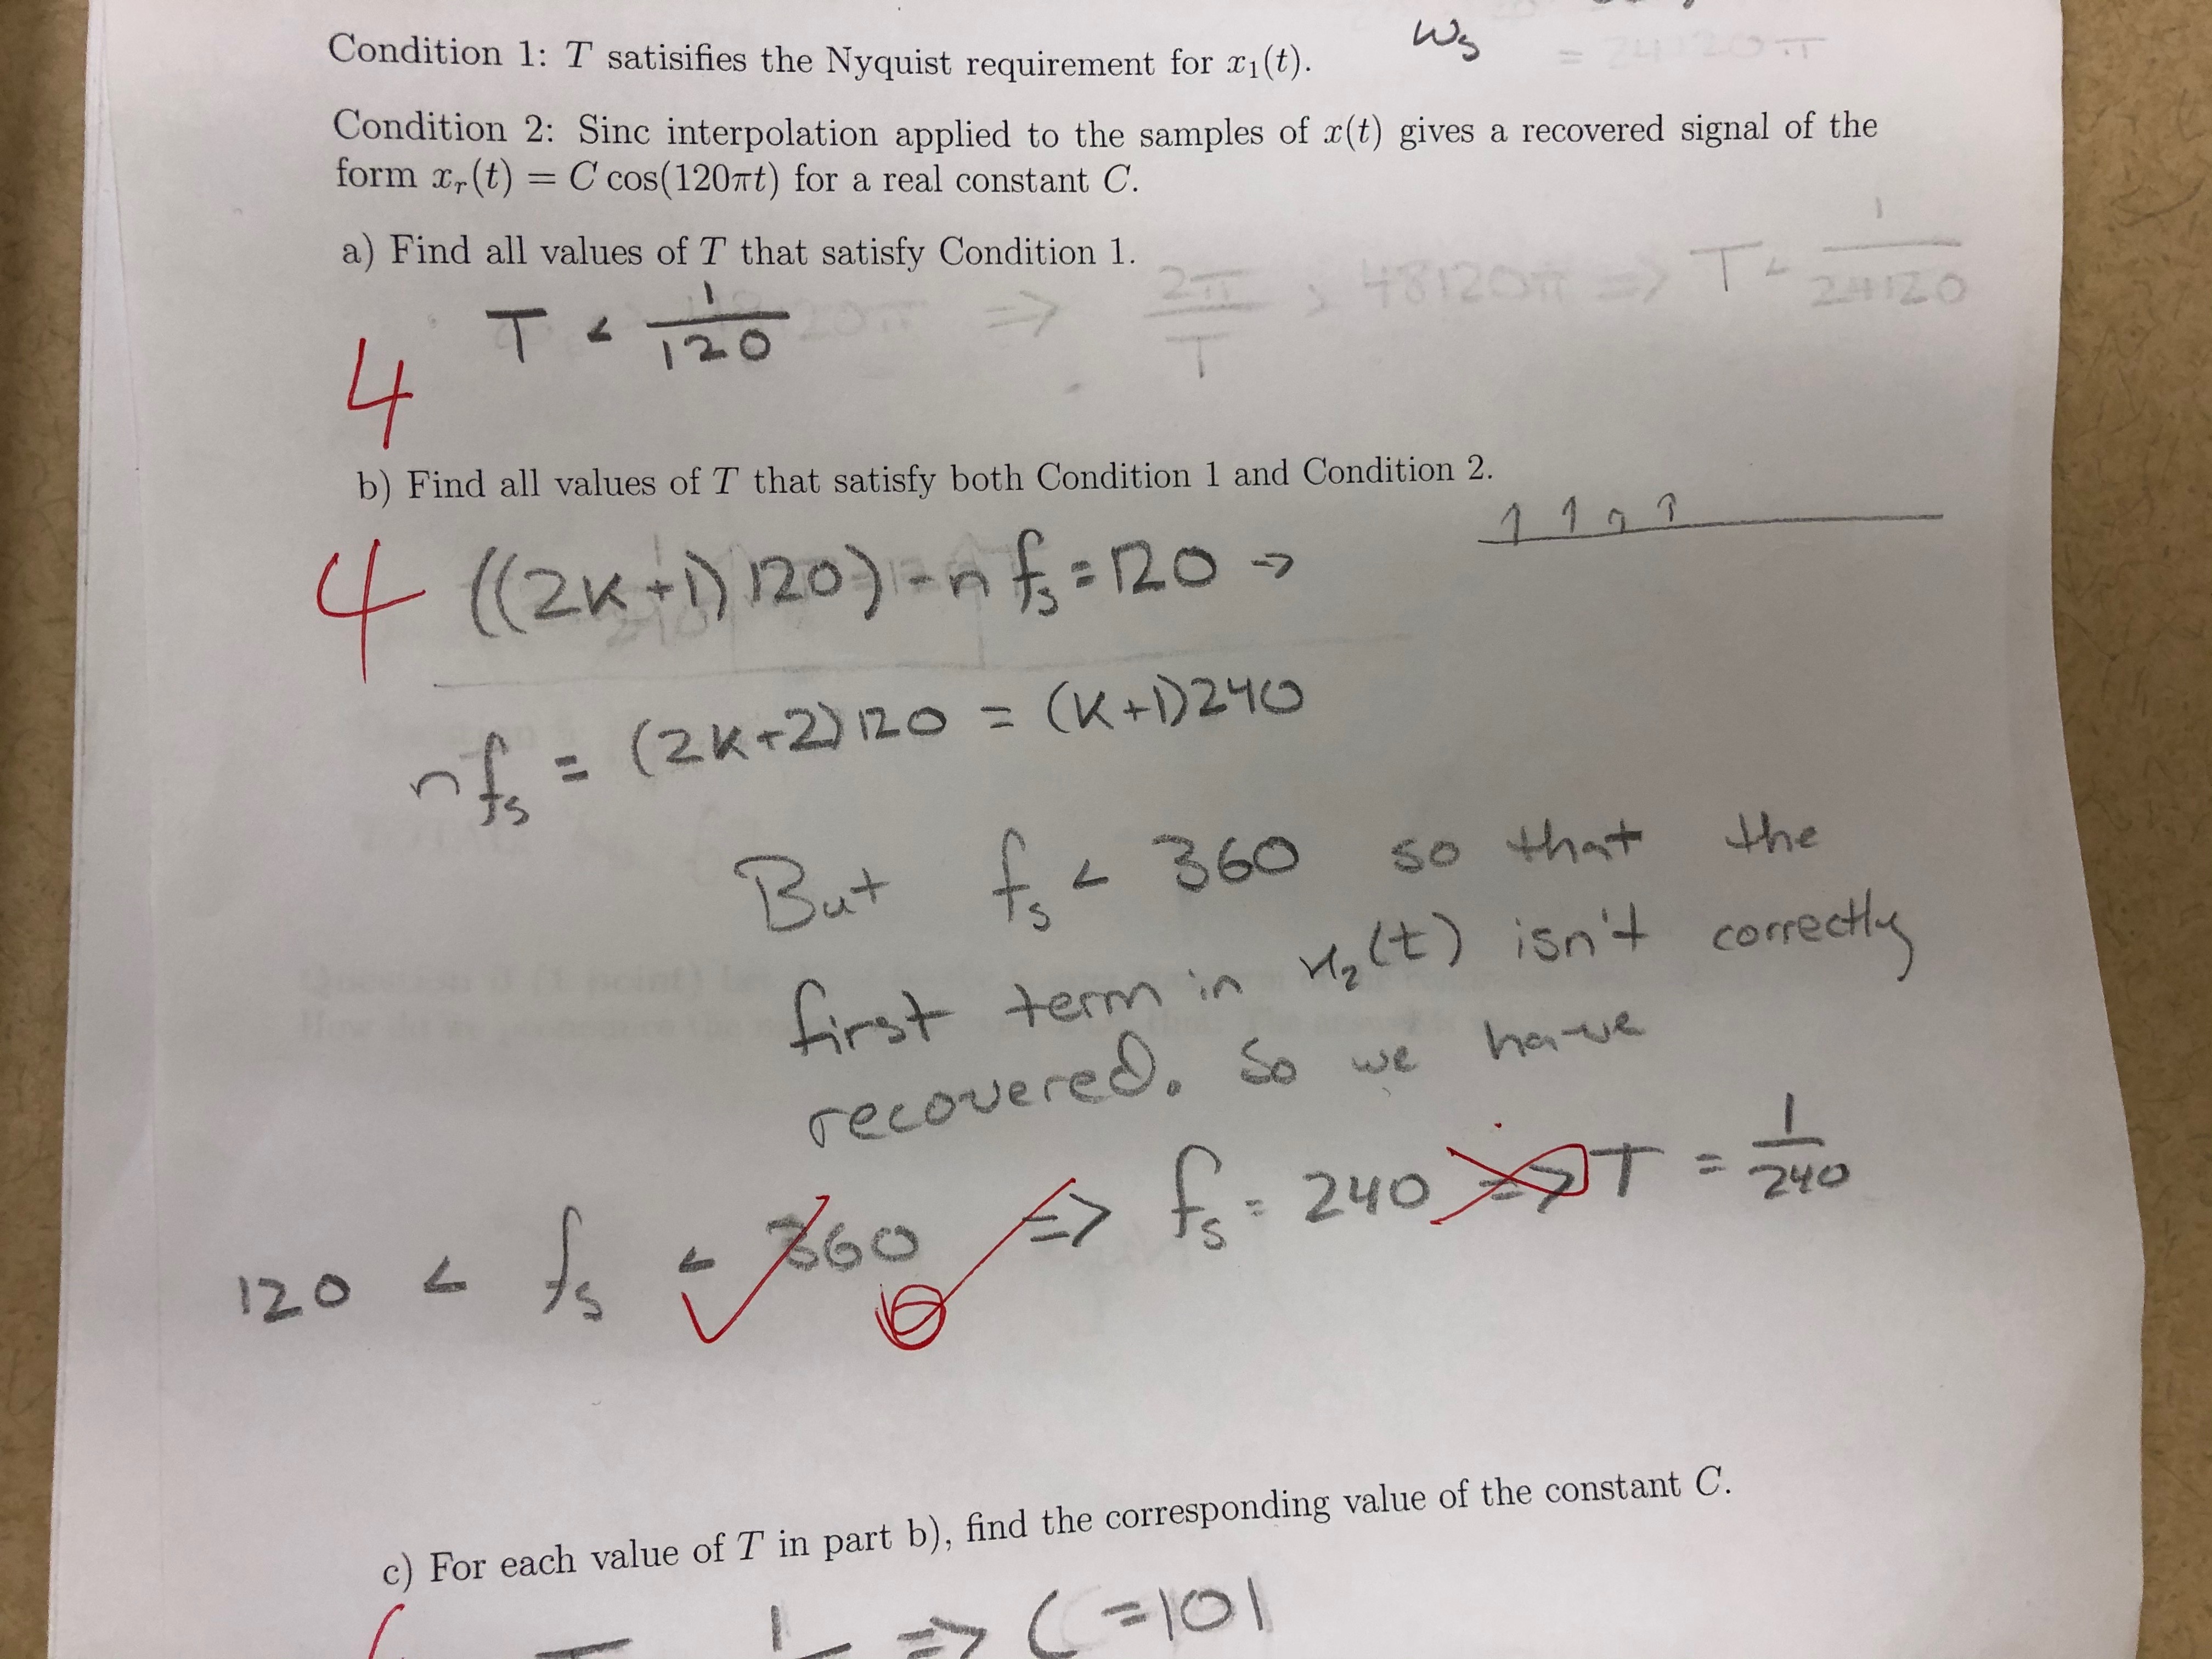 ωs
= 24120π
Condition 1: T satisifies the Nyquist requirement for x₁(t).
Condition 2: Sinc interpolation applied to the samples of x(t) gives a recovered signal of the
form xᵣ(t) = C cos(120πt) for a real constant C.
a) Find all values of T that satisfy Condition 1.
T < 1/120
⇒ 2π/T > 48120π ⇒ T < 1/24120
4
b) Find all values of T that satisfy both Condition 1 and Condition 2.
4 ((2k+1)120) - n fs = 120 →
n fs = (2k+2)120 = (k+1)240
But fs < 360 so that the
first term in x₂(t) isn't correctly
recovered. So we have
120 < fs < 360 ⇒ fs = 240 ⇒ T = 1/240
c) For each value of T in part b), find the corresponding value of the constant C.
⇒ C = 101